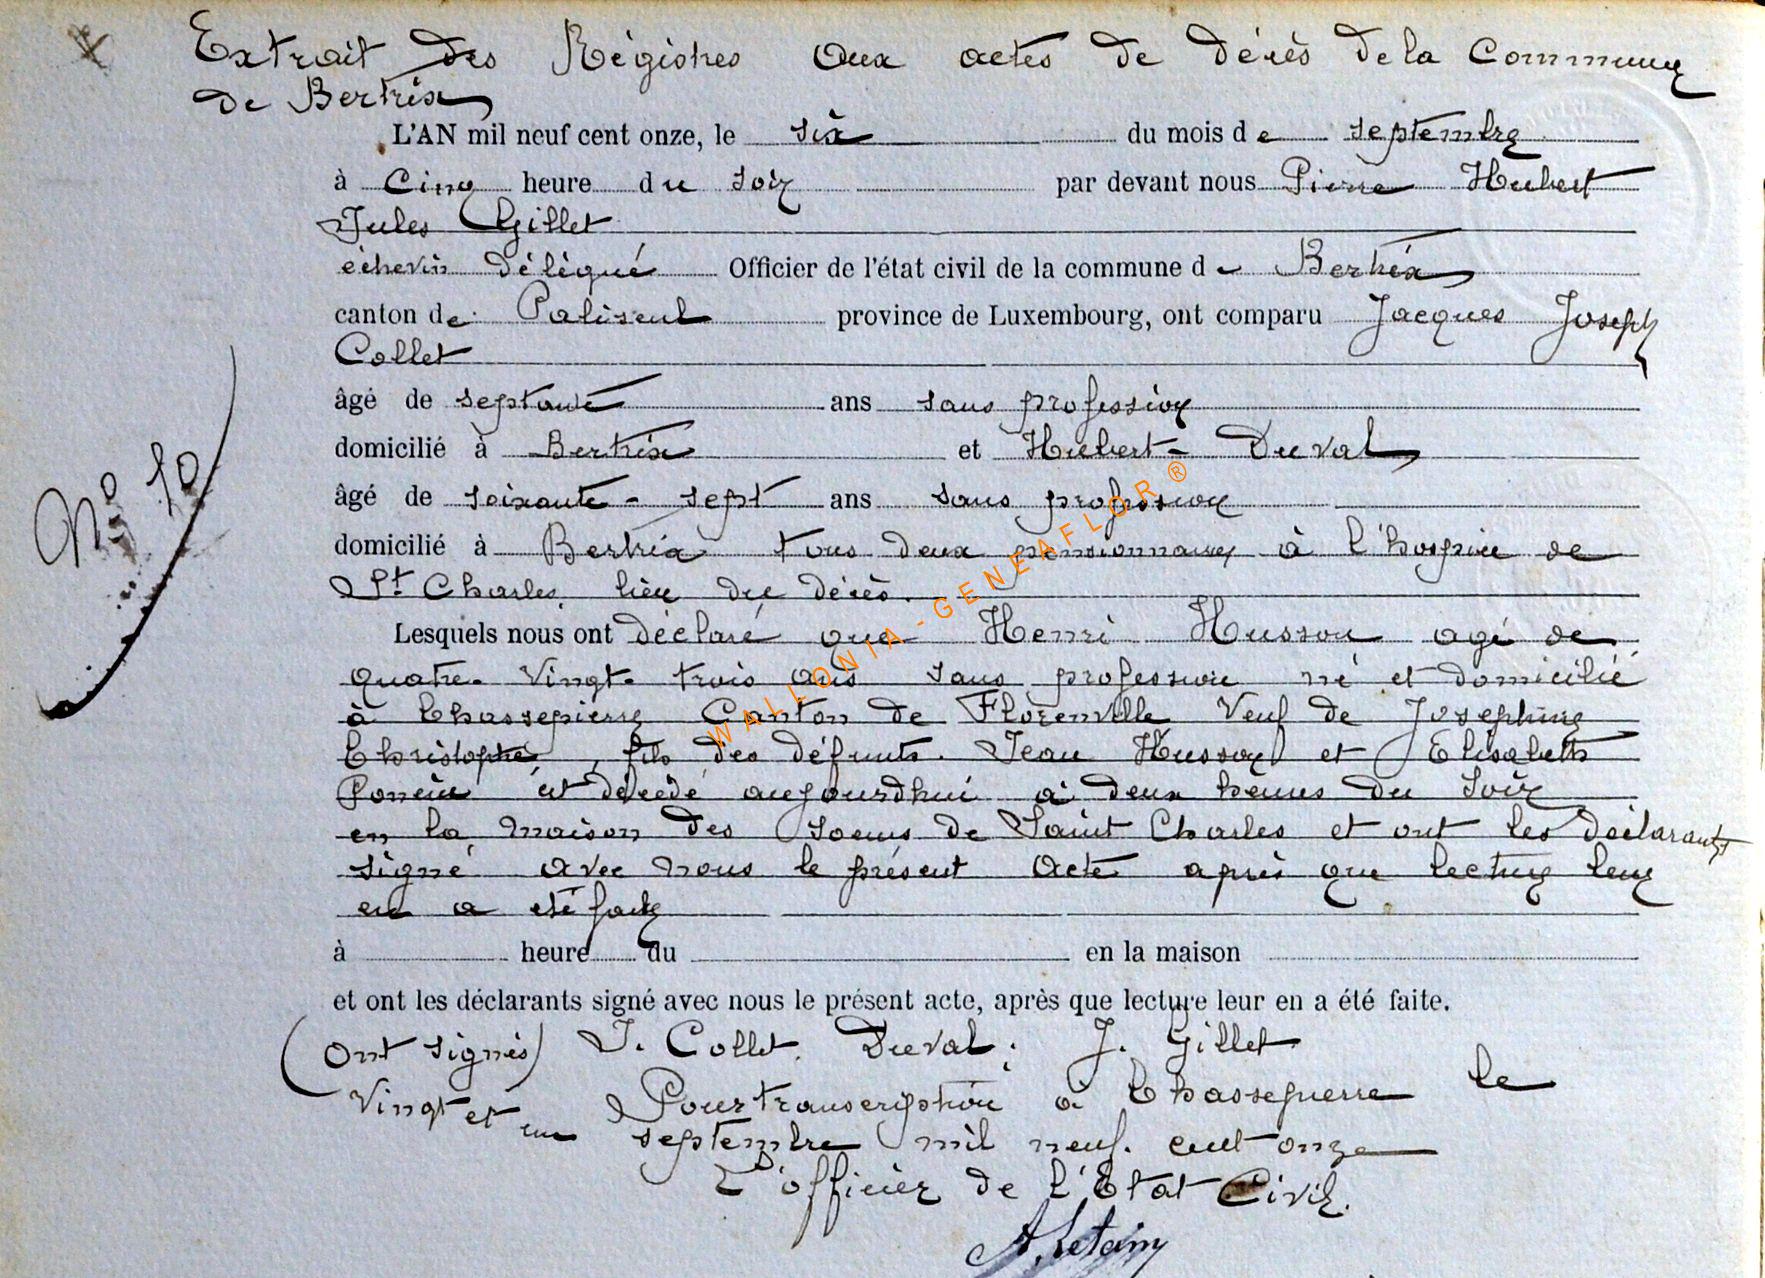 Extrait des Régistres aux actes de décès de la Commune
de Bertrix
L'AN mil neuf cent onze, le six du mois de septembre
à Cinq heure du soir par devant nous Pierre Hubert
Jules Gillet
échevin délégué Officier de l'état civil de la commune de Bertrix
canton de Paliseul province de Luxembourg, ont comparu Jacques Joseph
Collet
âgé de septante ans sans profession
domicilié à Bertrix et Hubert Duval
âgé de soixante-sept ans sans profession
domicilié à Bertrix tous deux pensionnaires à l'hospice de
St Charles, lieu du décès.
N° 10
Lesquels nous ont déclaré que Henri Husson agé de
quatre-vingt-trois ans sans profession né et domicilié
à Chassepierre Canton de Florenville Veuf de Joséphine
Christophe, fils des défunts Jean Husson et Elisabeth
est décédé aujourdhui à deux heures du soir
en la maison des soeurs de Saint Charles et ont les déclarants
signé avec nous le présent acte après que lecture leur
en a été faite
à heure du en la maison
et ont les déclarants signé avec nous le présent acte, après que lecture leur en a été faite.
(Ont signés) J. Collet. Duval. J. Gillet
Pour transcription à Chassepierre le
Vingt et un septembre mil neuf cent onze
L'officier de l'Etat Civil.
A. Letain
WALLONIA - GENEAFLOR ®